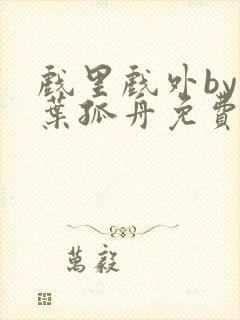 戲里戲外by
葉孤舟免費
萬毅